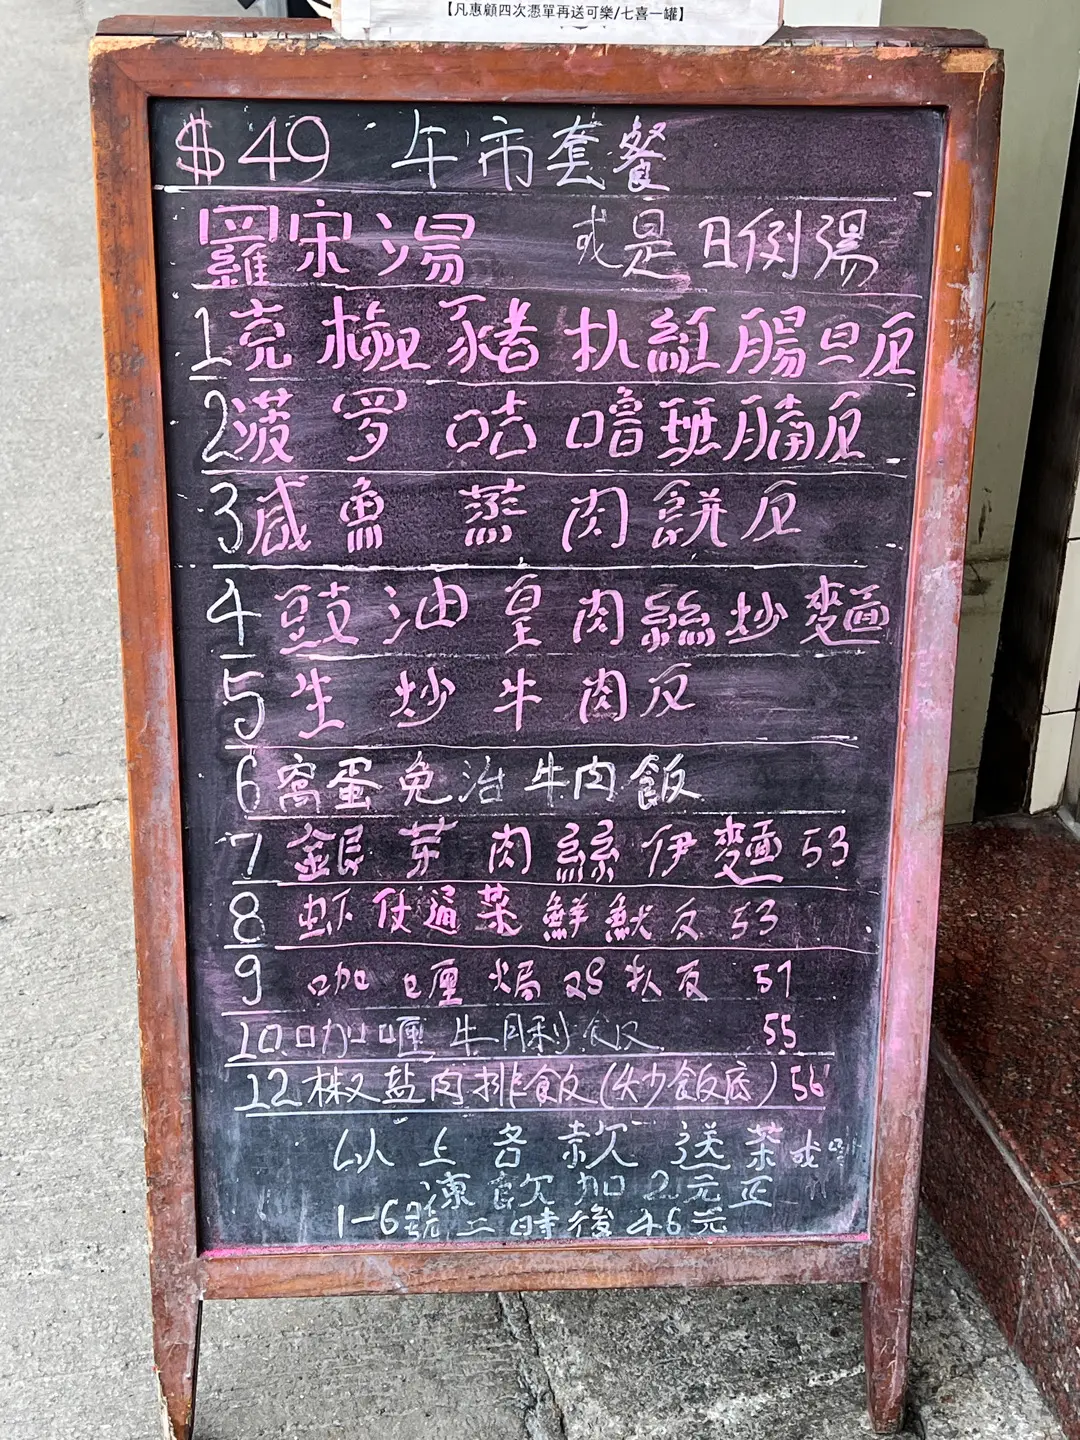 【凡惠顧四次憑單再送可樂/七喜一罐】
$49 午市套餐
羅宋湯 或是日例湯
1 克椒豬扒紅腸旦反
2 菠罗咕嚕班腩反
3 咸魚蒸肉餅反
4 豉油皇肉絲炒麵
5 生炒牛肉反
6 窩蛋免治牛肉飯
7 銀芽肉絲伊麵 53
8 虾仔通菜鮮魷反 53
9 咖喱焗鸡扒反 51
10 咖喱牛脷飯 55
12 椒盐肉排飯(炒飯底) 56
以上各款送茶或啡
凍飲加2元正
1-6號二時後46元